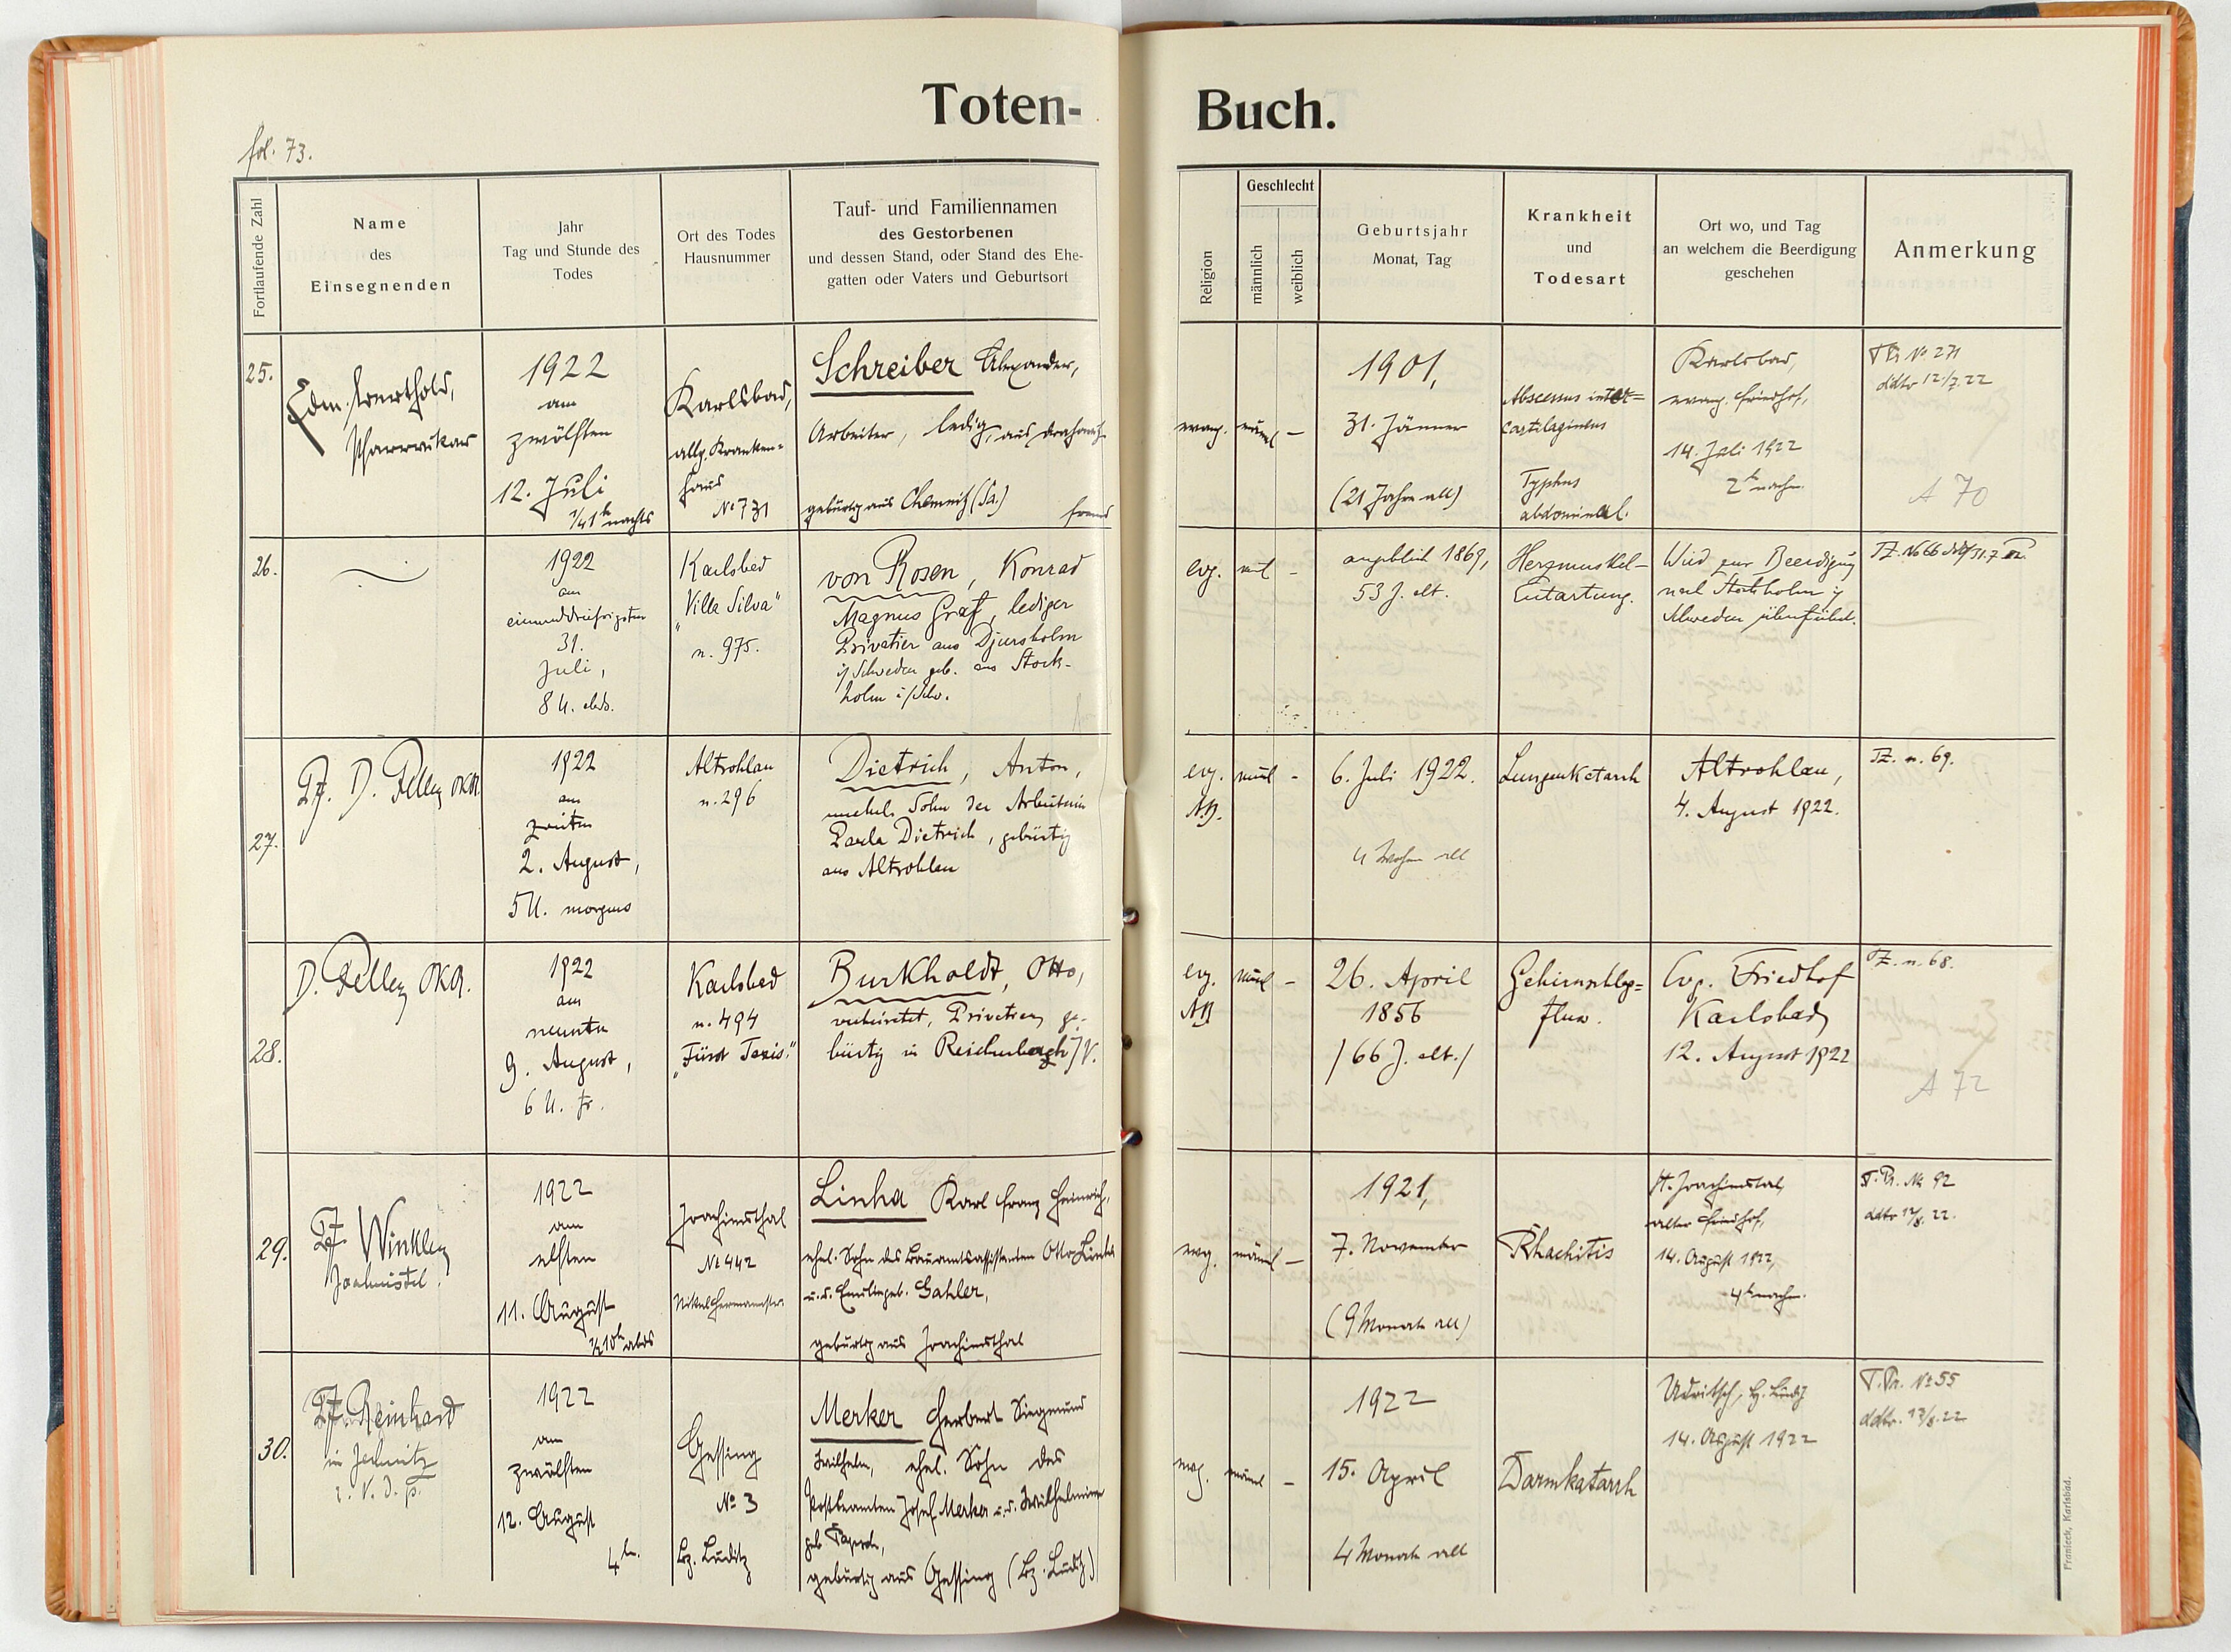 Toten-
Buch.
fol. 73.
Fortlaufende Zahl
Name
des
Einsegnenden
Jahr
Tag und Stunde des
Todes
Ort des Todes
Hausnummer
Tauf- und Familiennamen
des Gestorbenen
und dessen Stand, oder Stand des Ehe-
gatten oder Vaters und Geburtsort
Religion
Geschlecht
männlich
weiblich
Geburtsjahr
Monat, Tag
Krankheit
und
Todesart
Ort wo, und Tag
an welchem die Beerdigung
geschehen
Anmerkung
25.
Edm.
Pfarrvikar
1922
am
zwölften
12. Juli
1/4 1 h nachts
Karlsbad,
allg. Kranken=
haus
No 731
Schreiber Alexander,
Arbeiter, ledig, aus
gebürtig aus Chemnitz (Sa.)
evang.
männl
–
1901,
31. Jänner
(21 Jahre alt)
Abscessus inter=
cartilagineus
Typhus
abdominal.
Karlsbad,
evang. Friedhof,
14. Juli 1922
2 h nachm.
No 271
ddto 12/7.22
A 70
26.
1922
am
einunddreißigsten
31.
Juli,
8 U. abds.
Karlsbad
"Villa Silva"
n. 975.
von Rosen, Konrad
Magnus Graf, lediger
Privatier aus Djursholm
i/ Schweden geb. aus Stock-
holm i/Schw.
evg.
ml
–
angeblich 1869,
53 J. alt.
Herzmuskel-
Entartung.
Wird zur Beerdigung
nach Stockholm i/
Schweden überführt.
TZ. No 66 ddto/31.7.22.
27.
Pf. D. Feller OKR.
1922
am
zweiten
2. August,
5 U. morgens
Altrohlau
n. 296
Dietrich, Anton,
unehel. Sohn der Arbeiterin
Paula Dietrich, gebürtig
aus Altrohlau
evg.
A.B.
männl
-
6. Juli 1922.
4 Wochen alt
Lungenkatarrh
Altrohlau,
4. August 1922.
TZ. n. 69.
28.
D. Feller OKR.
1922
am
neunten
9. August,
6 U. fr.
Karlsbad
n. 494
"Fürst Taxis."
Burkholdt, Otto,
verheiratet, Privatier, ge-
bürtig in Reichenbach i/V.
evg.
AB
männl
–
26. April
1856
/66 J. alt./
Gehirnschlag=
fluss.
Evg. Friedhof
Karlsbad,
12. August 1922
TZ. n. 68.
A 72
29.
Pf. Winkler,
Joachimstal.
1922
am
elften
11. August
1/2 10 h abds
Joachimsthal
No 442
Linha Karl Franz Heinrich,
ehel. Sohn des Bauamtsassistenten Otto Linha
u. d. Emilie geb. Gahler,
gebürtig aus Joachimsthal
evg.
männl
–
1921,
7. November
(9 Monate alt)
Rhachitis
St. Joachimstal,
alter Friedhof,
14. August 1922,
4 h nachm.
T. Pr. No 92
ddto 12/8. 22.
30.
Pf. Reinhard
in Jechnitz
1922
am
zwölften
12. August
4 h.
Gessing
No 3
Bz. Luditz
Merker Herbert Siegmund
Wilhelm, ehel. Sohn des
Postbeamten Josef Merker u. d. Wilhelmine
gebürtig aus Gessing (Bz. Luditz)
evg.
männl
–
1922
15. April
4 Monate alt
Darmkatarrh
Udritsch, Bz. Luditz
14. August 1922
T. Pr. No 55
ddto. 12/8.22
Franieck, Karlsbad.